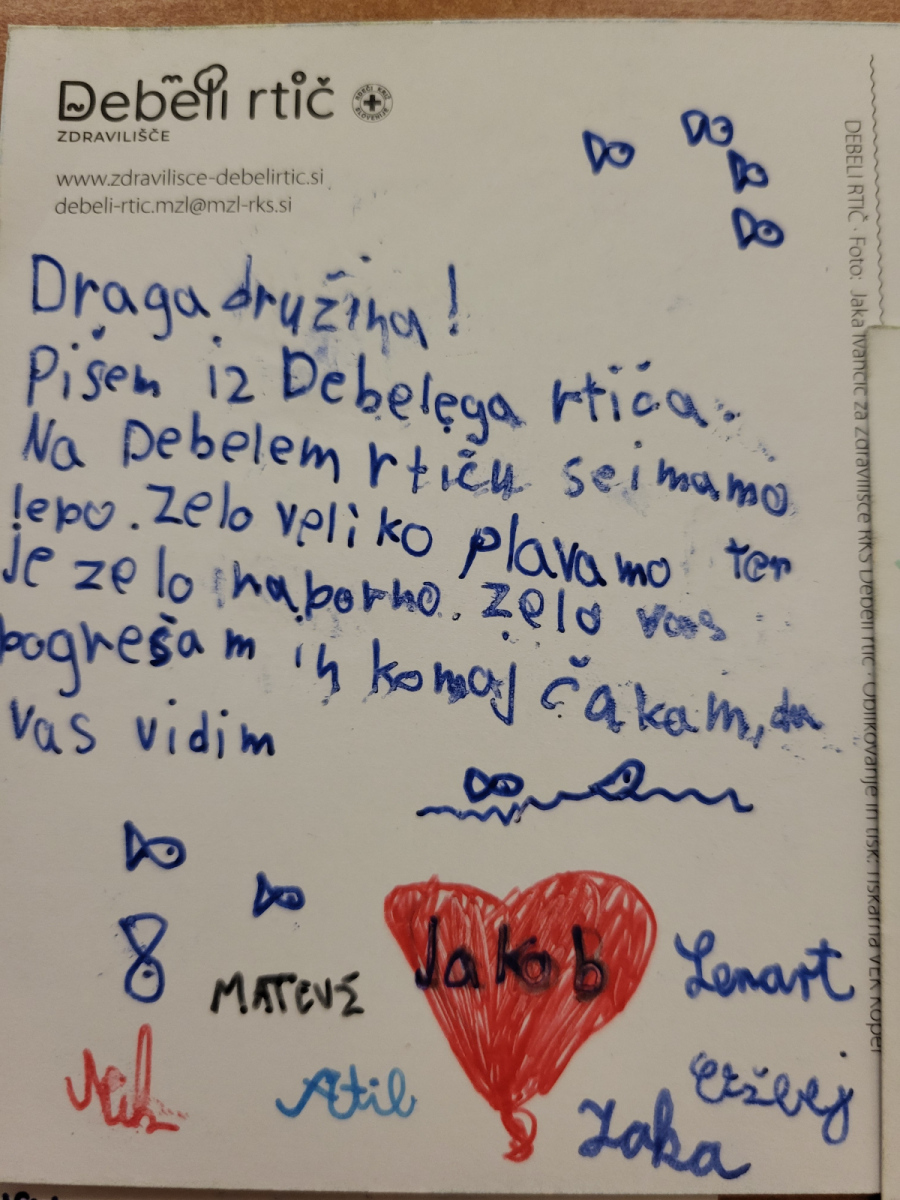 Debeli rtič
ZDRAVILIŠČE
www.zdravilisce-debelirtic.si
debeli-rtic.mzl@mzl-rks.si
Draga družina!
Pišem iz Debelega rtiča.
Na Debelem rtiču se imamo
lepo. Zelo veliko plavamo ter
je zelo naporno. Zelo vas
pogrešam in komaj čakam, da
vas vidim
Jakob
Lenart
MATEVŽ
Atil
Jaka
DEBELI RTIČ · Foto: Jaka Ivančič za Zdravilišče RKS Debeli rtič · Oblikovanje in tisk: Tiskarna VEK Koper